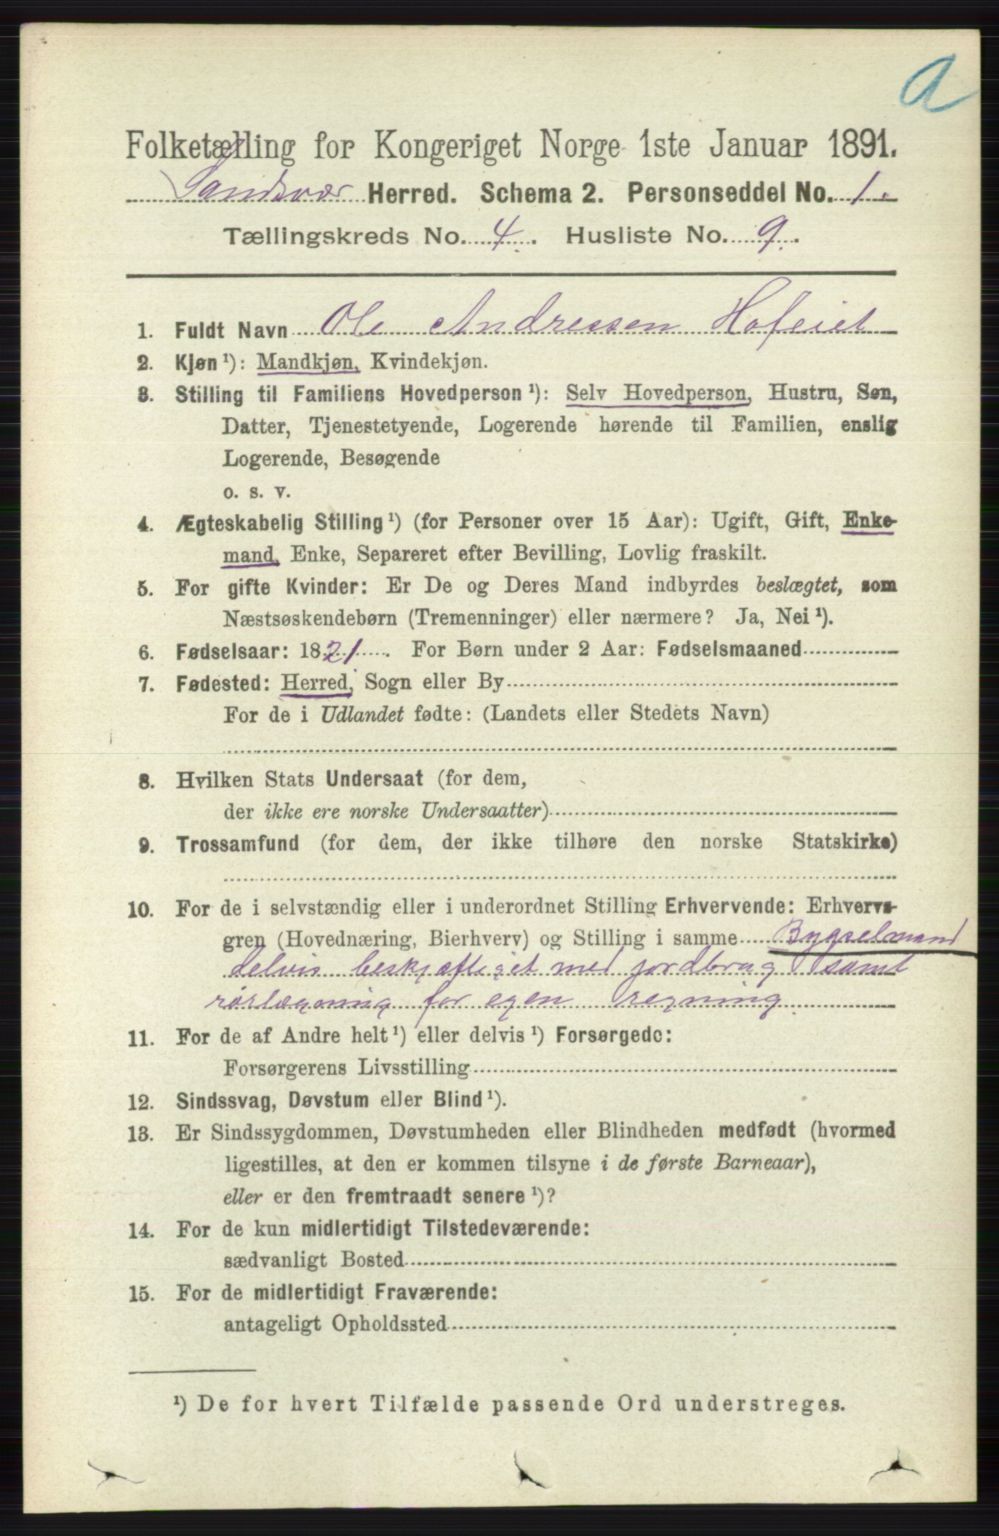 a
Folketælling for Kongeriget Norge 1ste Januar 1891.
Sandsvær Herred. Schema 2. Personseddel No. 1.
Tællingskreds No. 4. Husliste No. 9.
1. Fuldt Navn Ole Andressen Hofeiet
2. Kjøn ¹): Mandkjøn, Kvindekjøn.
3. Stilling til Familiens Hovedperson ¹): Selv Hovedperson, Hustru, Søn,
Datter, Tjenestetyende, Logerende hørende til Familien, enslig
Logerende, Besøgende
o. s. v.
4. Ægteskabelig Stilling ¹) (for Personer over 15 Aar): Ugift, Gift, Enke-
mand, Enke, Separeret efter Bevilling, Lovlig fraskilt.
5. For gifte Kvinder: Er De og Deres Mand indbyrdes beslægtet, som
Næstsøskendebørn (Tremenninger) eller nærmere? Ja, Nei ¹).
6. Fødselsaar: 1821. For Børn under 2 Aar: Fødselsmaaned
7. Fødested: Herred, Sogn eller By
For de i Udlandet fødte: (Landets eller Stedets Navn)
8. Hvilken Stats Undersaat (for dem,
der ikke ere norske Undersaatter)
9. Trossamfund (for dem, der ikke tilhøre den norske Statskirke)
10. For de i selvstændig eller i underordnet Stilling Erhvervende: Erhvervs-
gren (Hovednæring, Bierhverv) og Stilling i samme Bygselmand
delvis beskjæftiget med jordbrug samt
rørlægning for egen regning.
11. For de af Andre helt ¹) eller delvis ¹) Forsørgede:
Forsørgerens Livsstilling
12. Sindssvag, Døvstum eller Blind ¹).
13. Er Sindssygdommen, Døvstumheden eller Blindheden medfødt (hvormed
ligestilles, at den er kommen tilsyne i de første Barneaar),
eller er den fremtraadt senere ¹)?
14. For de kun midlertidigt Tilstedeværende:
sædvanligt Bosted
15. For de midlertidigt Fraværende:
antageligt Opholdssted
¹) De for hvert Tilfælde passende Ord understreges.